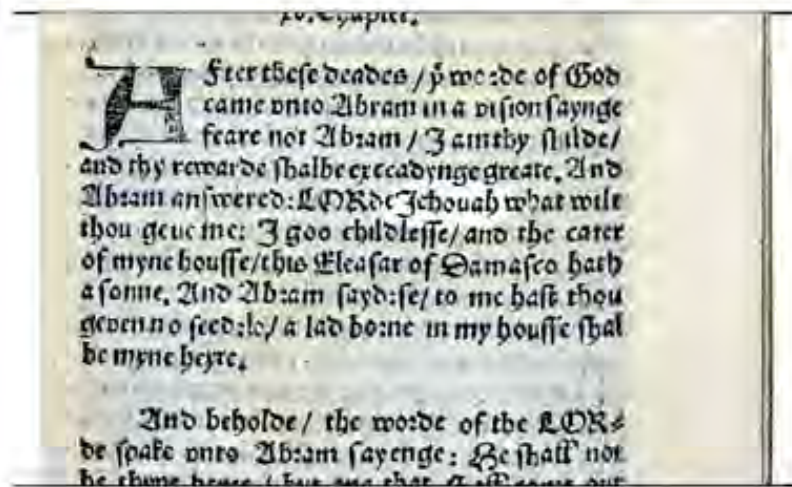 xv. Chapter.
After these deades / yͤ worde of God
came vnto Abram in a vision saynge
feare not Abram / I am thy shilde/
and thy rewarde shalbe exceadynge greate. And
Abram answered: LORde Jehouah what wilt
thou geue me: I goo childlesse/ and the cater
of myne housse/ this Eleasar of Damasco hath
a sonne. And Abram sayd: se/ to me hast thou
geven no seed: lo/ a lad borne in my housse shal
be myne heyre.
And beholde / the worde of the LOR=
de spake vnto Abram sayenge: He shall not
be thyne heyre / but one that shall come out